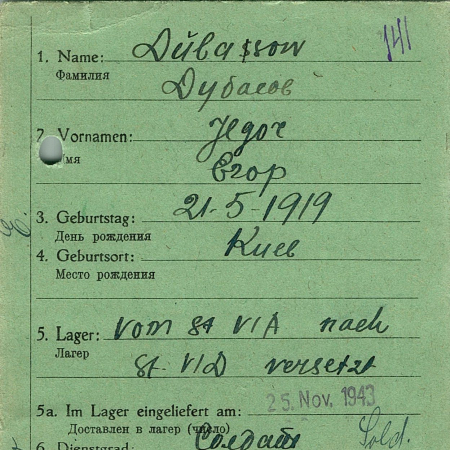 141
1. Name: Dübassow
Фамилия
Дубасов
2. Vornamen: Jegor
Имя
Егор
3. Geburtstag: 21-5-1919
День рождения
4. Geburtsort: Киев
Место рождения
5. Lager: vom St VIA nach
Лагер
St. VID versetzt
25. Nov. 1943
5a. Im Lager eingeliefert am:
Доставлен в лагер (число)
6. Dienstgrad: Солдат Sold.